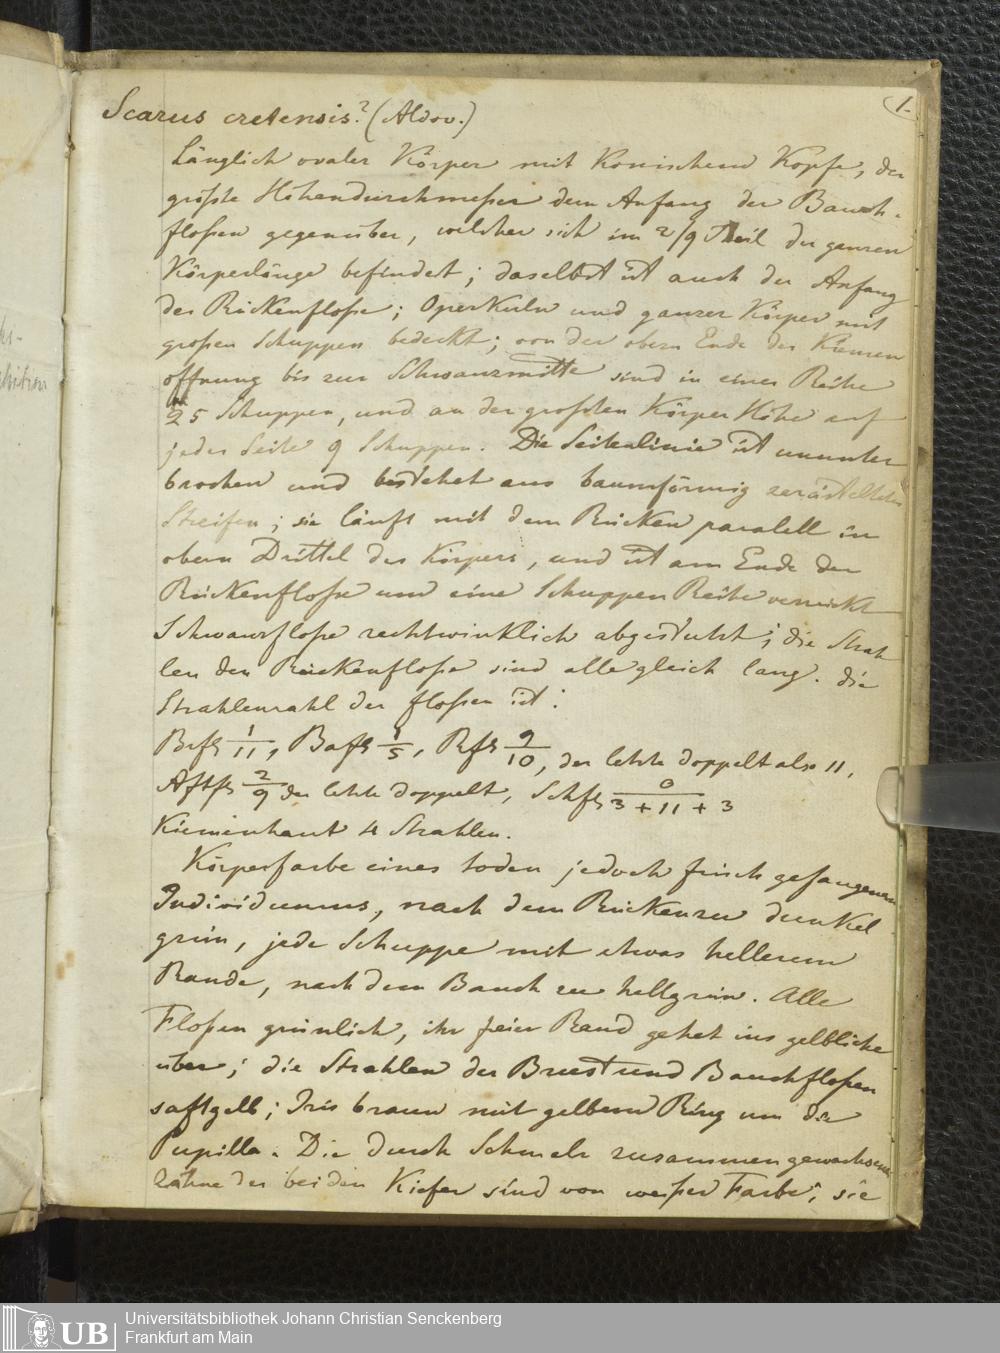 1.
Scarus cretensis? (Aldov.)
Länglich ovaler Körper mit Konischem Kopfe, der
größte Höhendurchmeßer dem Anfang der Bauch-
floßen gegenüber, welcher sich im 2/9 Theil der ganzen
Körperlänge befindet; daselbst ist auch der Anfang
der Rückenfloße; Operkuln und ganzer Körper mit
großen Schuppen bedeckt; von der obern Ende der Kiemen
öffnung bis zur Schwanzmitte sind in einer Reihe
25 Schuppen, und an der grosten Körper Höhe auf
jeder Seite 9 Schuppen. Die Seitenlinie ist ununter
brochen und bestehet aus baumförmig zerästelten
Streifen; sie läuft mit dem Rücken paralell im
obern Drittel des Körpers, und ist am Ende der
Rückenfloße um eine Schuppen Reihe verrückt
Schwanzfloße rechtwinklich abgestutzt; die Strah
len der Rückenfloße sind alle gleich lang. die
Strahlenzahl der floßen ist:
Brfß 1/11, Bafß 1/5, Rfß 9/10, der letzte doppelt also 11,
Aftfß 2/9 der letzte doppelt, Schfß 0/3+11+3
Kiemenhaut 4 Strahlen.
Körperfarbe eines toden jedoch frisch gefangenen
Individuums, nach dem Rücken zu dunkel
grün, jede Schuppe mit etwas hellerem
Rande, nach dem Bauch zu hellgrün. Alle
Floßen grünlich, ihr freier Rand gehet ins gelbliche
über; die Strahlen der Brust und Bauchfloßen
saftgelb; Iris braun mit gelbem Ring um die
Pupilla. Die durch Schmelz zusammengewachsenen
Zähne der beiden Kiefer sind von weißer Farbe; sie
UB
Universitätsbibliothek Johann Christian Senckenberg
Frankfurt am Main